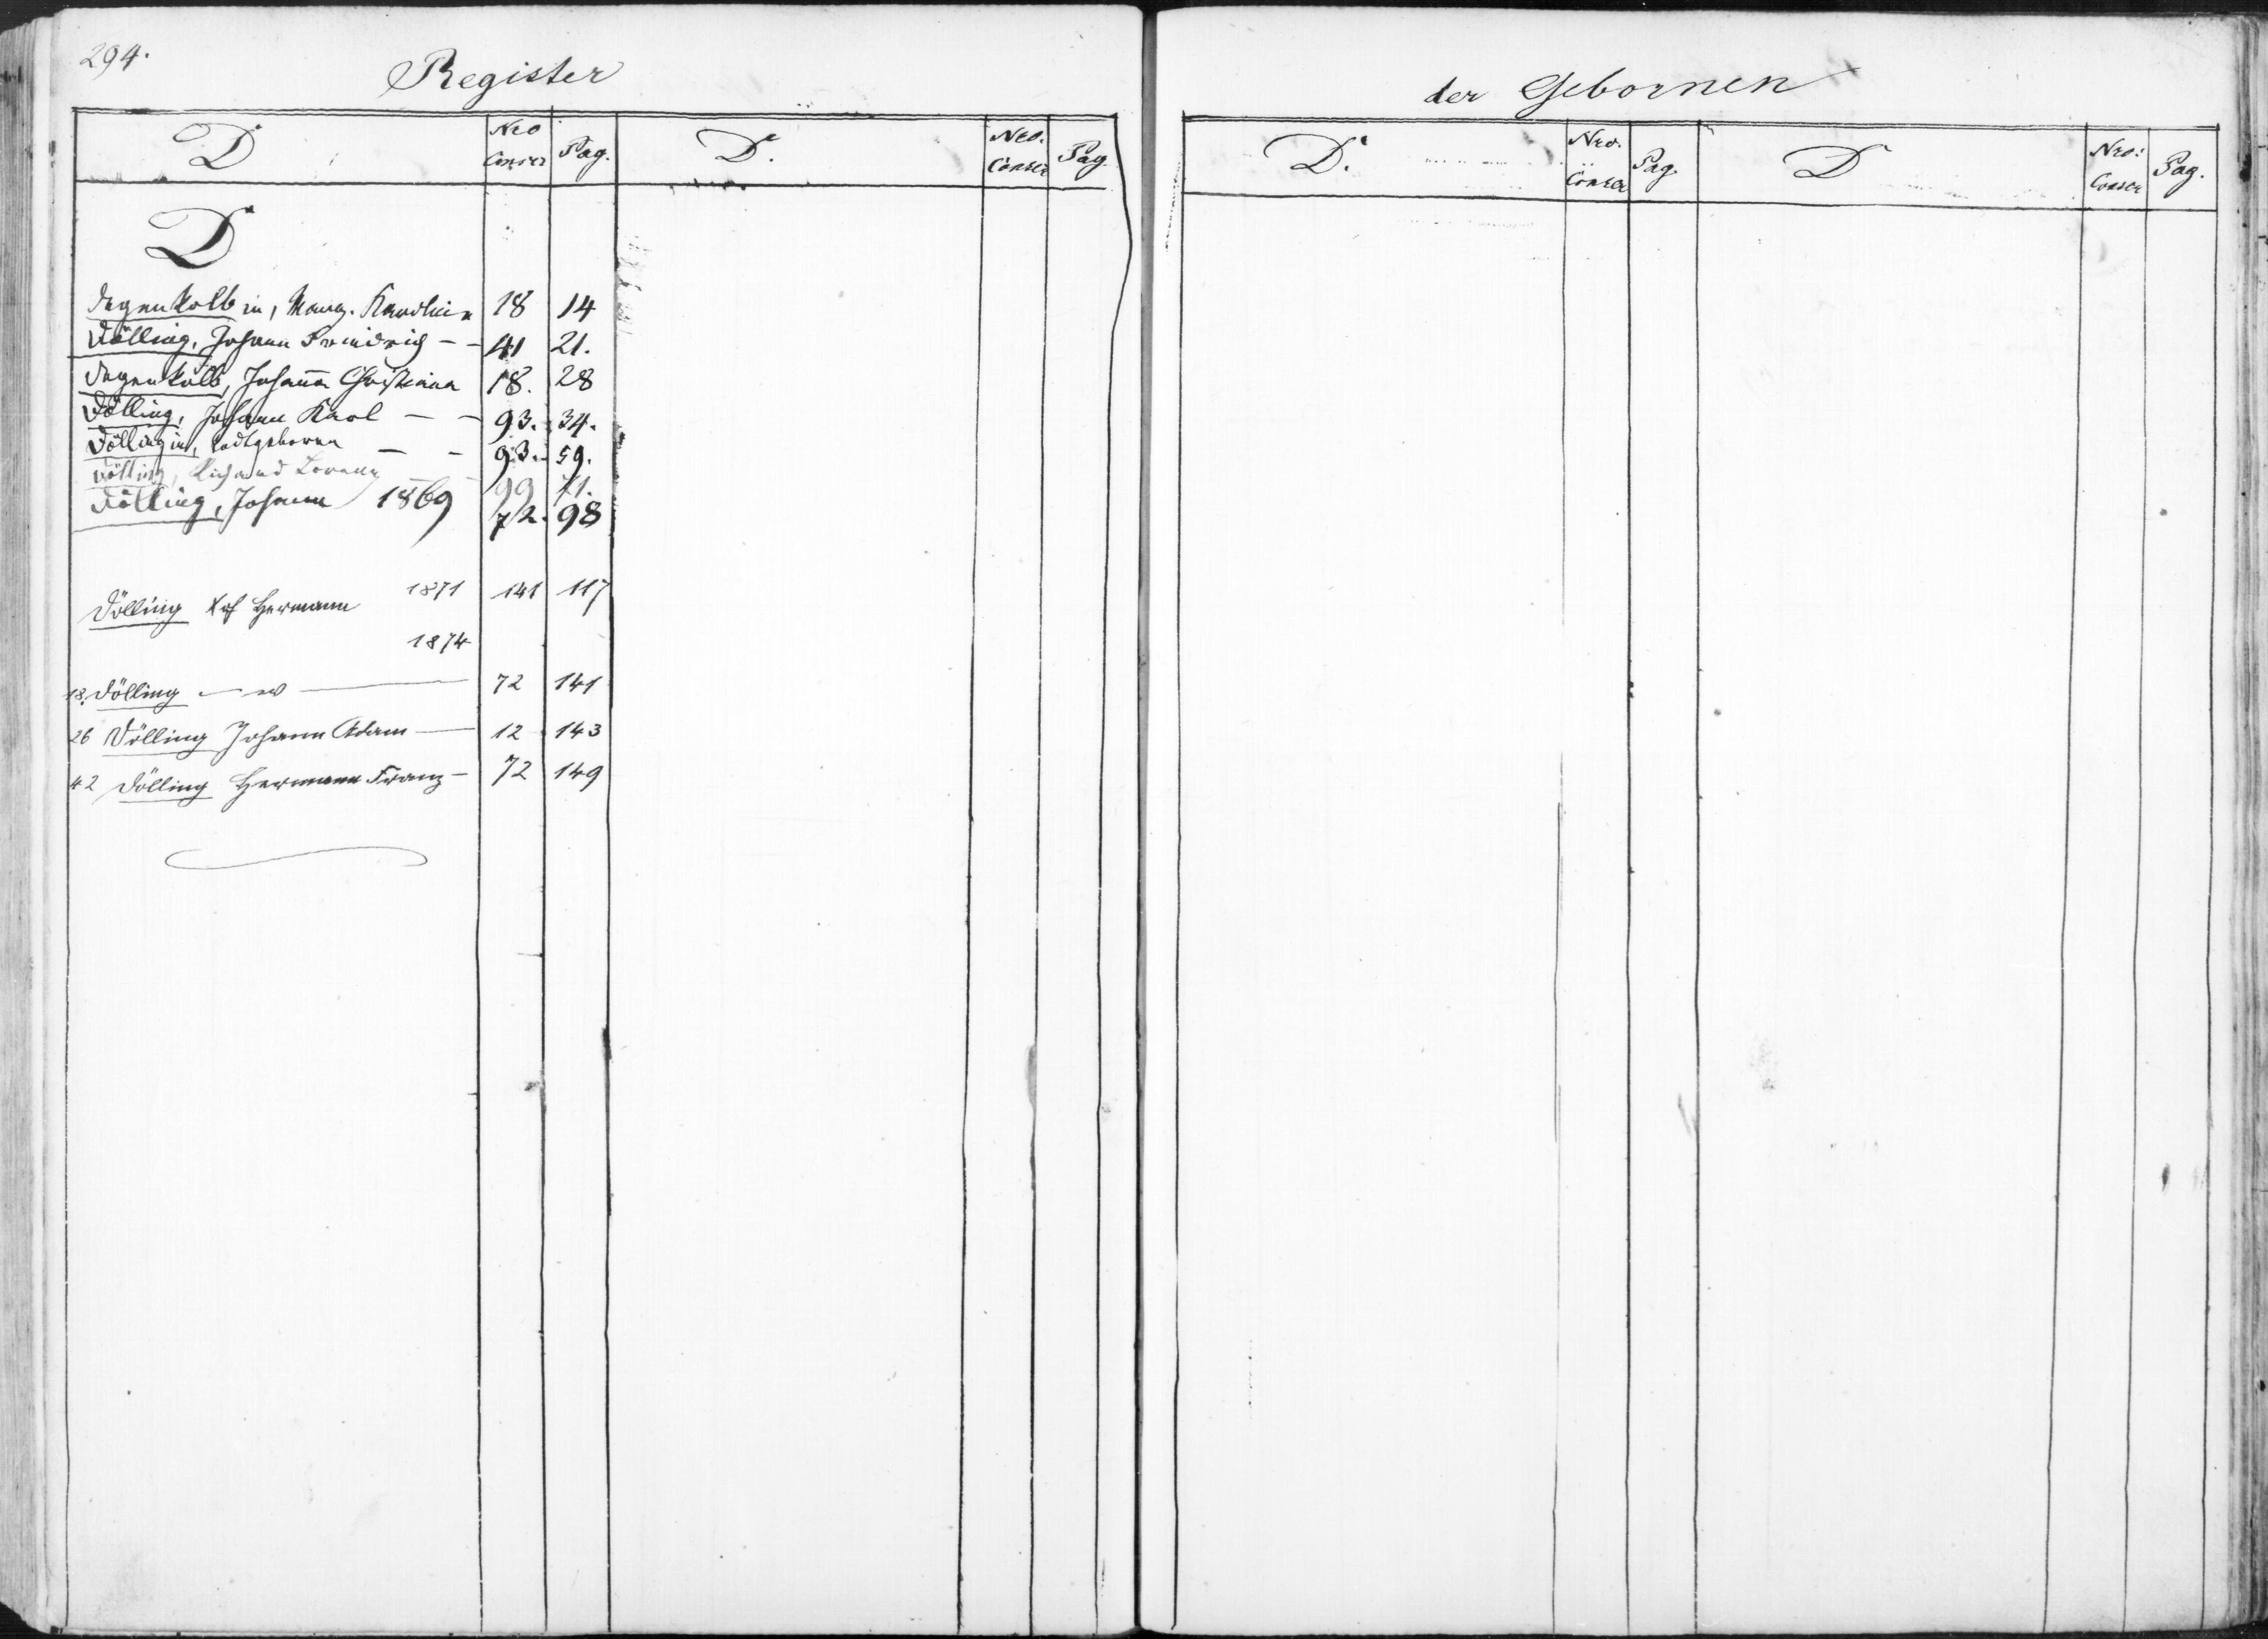 294.
Register
der Gebornen
D Nro Conscr Pag. D. Nro. Conscr Pag
D. Nro. Conscr Pag. D Nro: Conscr Pag.
D
Degenkolbin, Marg. Karolin 18 14
Dölling, Johann Friedrich — — 41 21.
Degenkolb, Johanna Christiana 18. 28
Dölling, Johann Karl — — 93. 34.
Döllingin, todtgeboren — — 93. 59.
Dölling, Richard Lorenz 99 71.
Dölling, Johann 1869 72. 98
1871 141 117
Dölling Hermann
1874
18. Dölling — — 72 141
26 Dölling Johann Adam — 12 143
42 Dölling Hermann Franz — 72 149